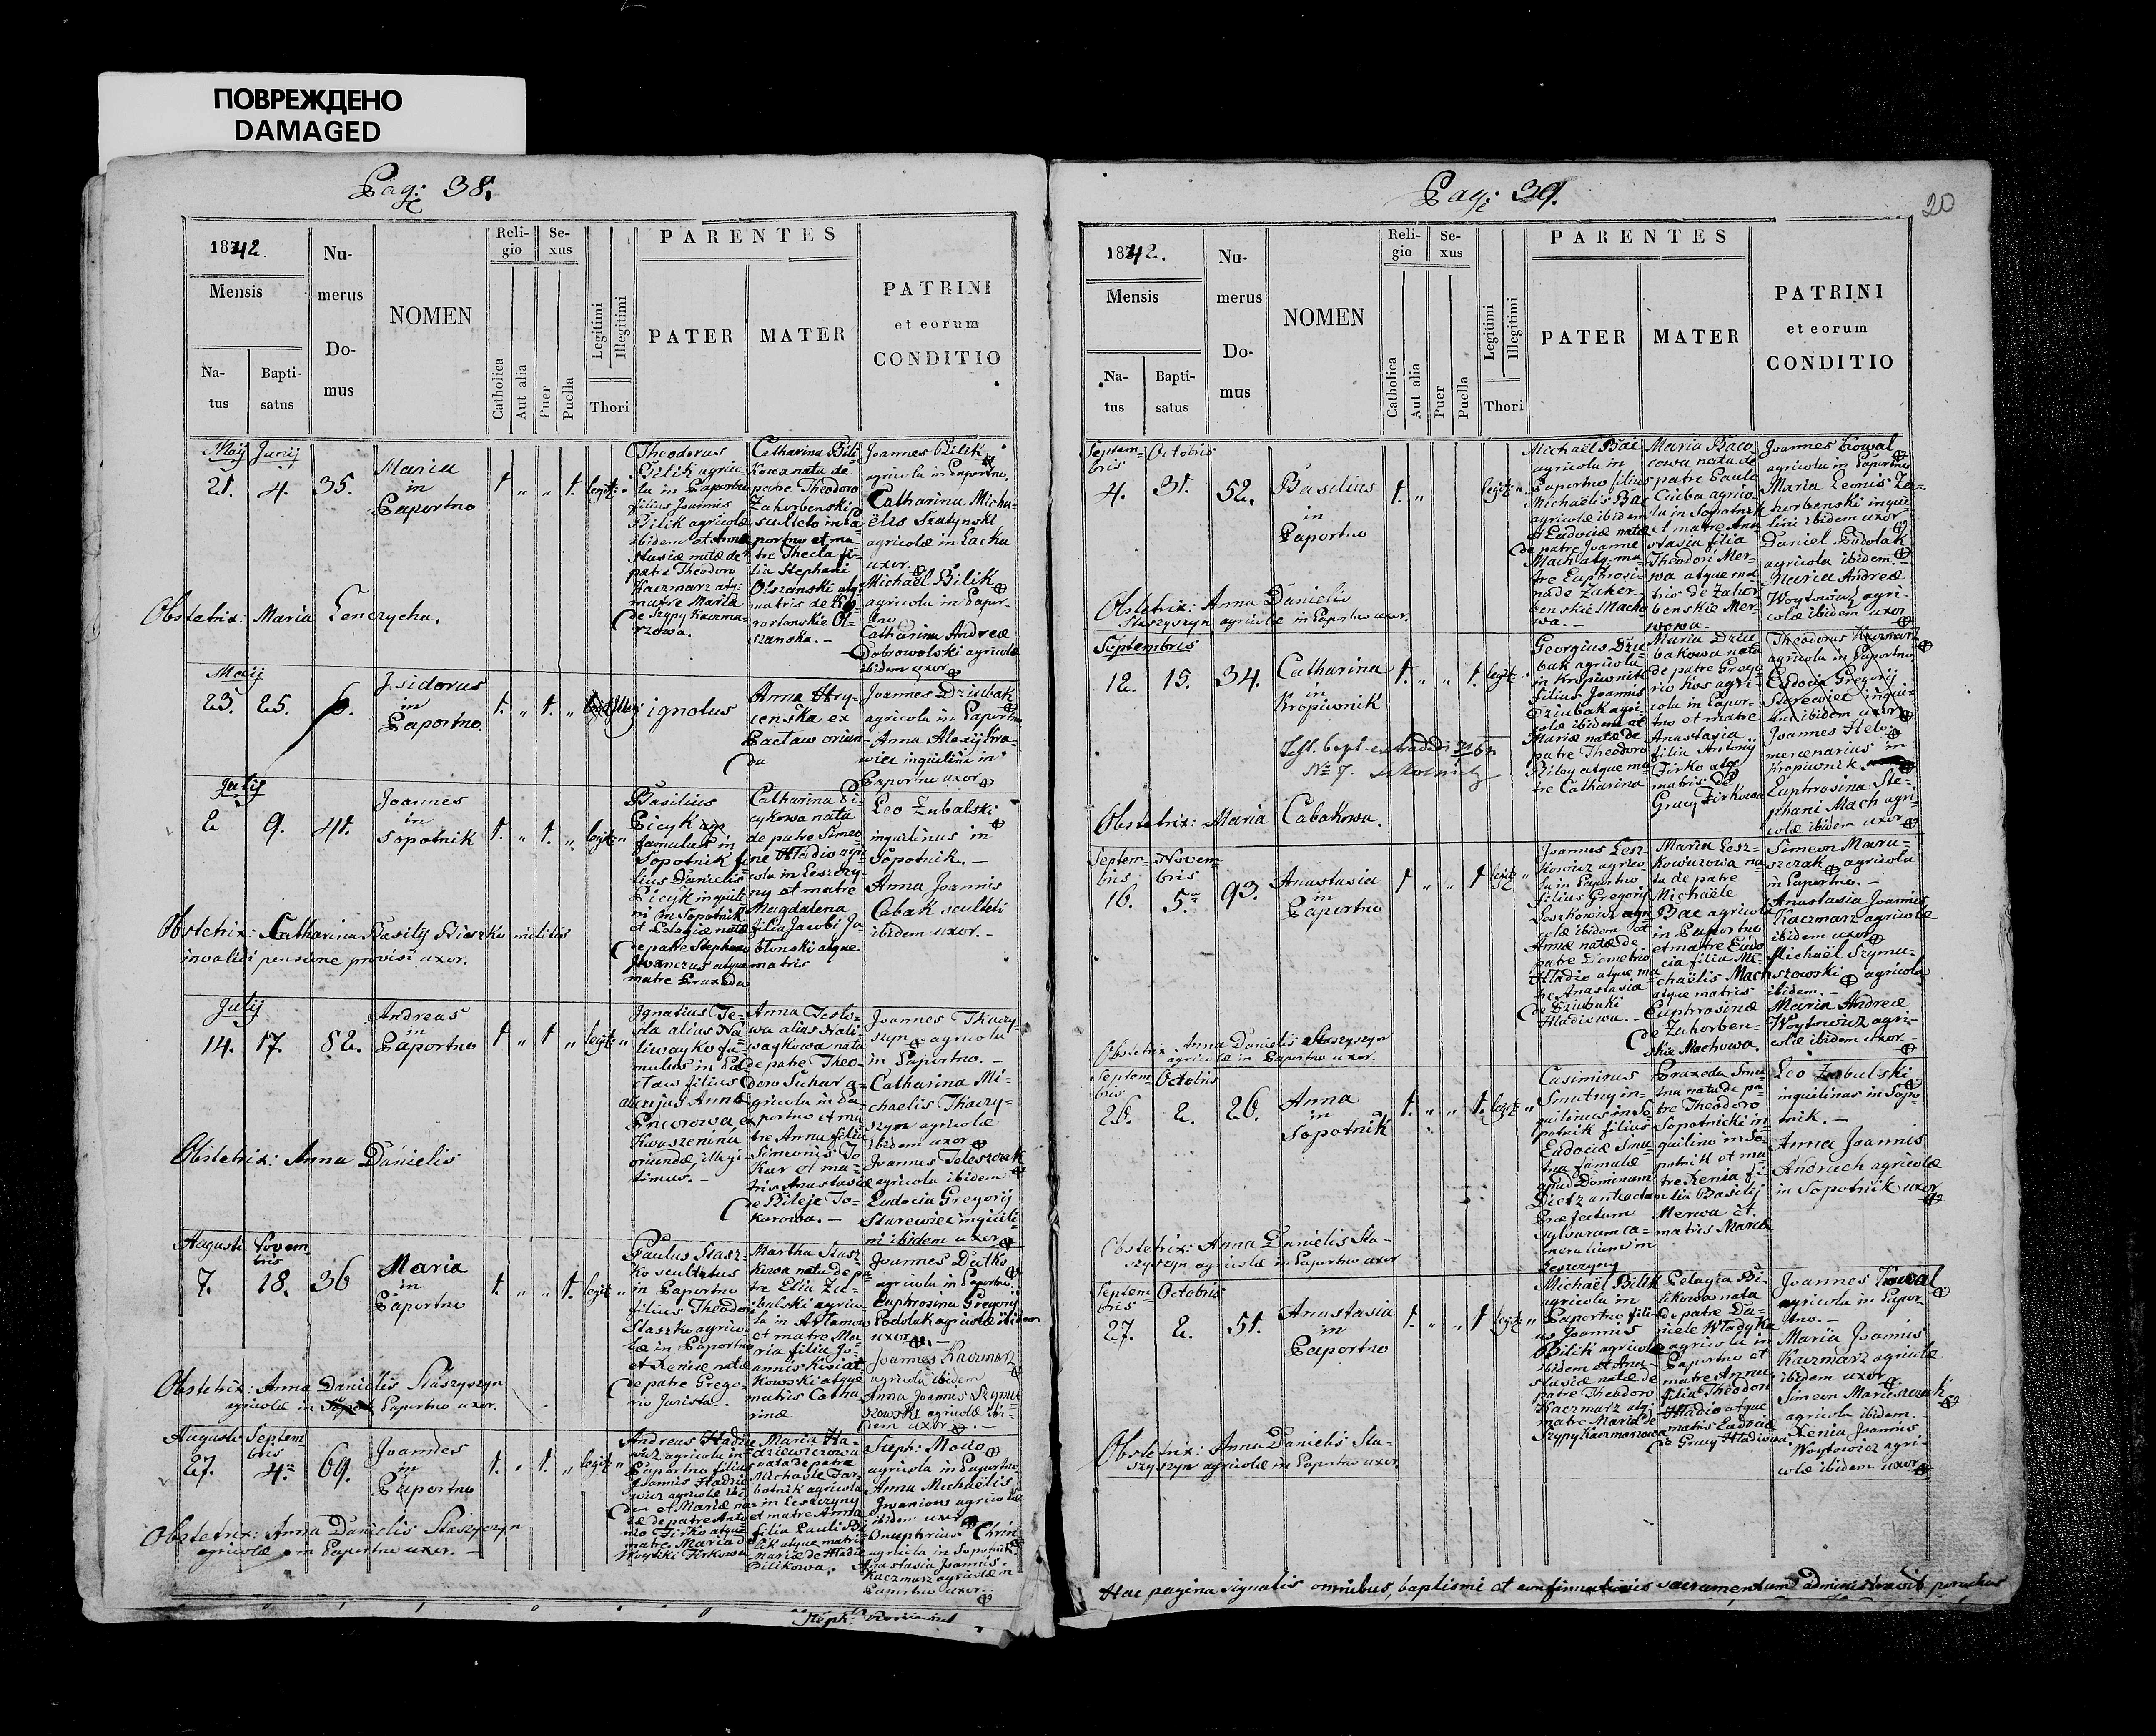 ПОВРЕЖДЕНО
DAMAGED
Pag: 38.
1842.
Mensis
Na-
tus
Bapti-
satus
Nu-
merus
Do-
mus
NOMEN
Reli-
gio
Catholica
Aut alia
Se-
xus
Puer
Puella
Legitimi
Illegitimi
Thori
PARENTES
PATER
MATER
PATRINI
et eorum
CONDITIO
Maij Junij
21. 4. 35.
Maria
in
Paportno
legit:
Theodorus
Bilik agrico-
la in Paportno
filius Joannis
Bilik agricolæ
ibidem et Ana-
stasiæ natæ de
patre Theodoro
Kaczmarz atq:
matre Maria
de Szypy Kaczma-
rzowa.
Catharina Bili-
kowa nata de
patre Theodoro
Zahorbenski
sculteto in Pa-
portno et ma-
tre Thecla fi-
lia Stephani
Olszanski atq:
matris de
Ol-
szanska. -
Joannes Bilik
agricola in Paportno.
Catharina Micha-
ëlis Szatynski
agricolæ in Lacka
uxor.
Michaël Bilik
agricola in Papor-
tno
Catharina Andreæ
Dobrowolski agricolæ
ibidem uxor
Obstetrix: Maria Lenczycha.
Maij
23. 25. 6.
Isidorus
in
Paportno.
ignotus
Anna Hry-
censka ex
Pactaw oriun-
da
Joannes Dziubak
agricola in Paportno
Anna Alexij
inquilini in
Paportno uxor
Julij
2 9. 41.
Joannes
in
Sopotnik
legit:
Basilius
Picyk
famulus in
Sopotnik fi-
lius Danielis
Picyk inquili-
ni in Sopotnik
et Pelagiæ natæ
de patre Stephano
Iwanczus atque
matre Praxeda
Catharina Pi-
cykowa nata
de patre Simeo-
ne Hladio agri-
cola in Leszczy-
ny et matre
Magdalena
filia Jacobi Ja-
blonski atque
matris
Leo Zubalski
inquilinus in
Sopotnik. -
Anna Joannis
Cabak sculteti
ibidem uxor. -
Obstetrix: Catharina Basilij Bieszko militis
invalidi pensione provisi uxor.
Julij
14. 17. 82.
Andreas
in
Paportno
legit:
Ignatius Te-
sla alius Na-
liwayko fa-
mulus in Pa-
ctaw filius
Annæ
ex
Kwaszenina
oriundæ, illegi-
timus. -
Anna Teslo-
wa alias Nali-
waykowa nata
de patre Theo-
doro Suhar a-
gricola in Pa-
portno et ma-
tre Anna filia
Simeonis To-
kar et ma-
tris Anastasiæ
de Bileje To-
karowa. -
Joannes Tkaczy-
szyn agricola
in Paportno. -
Catharina Mi-
chaelis Tkaczy-
szyn agricolæ
ibidem uxor
Joannes Teleszczak
agricola ibidem
Eudocia Gregorij
Starewiec inquili-
ni ibidem uxor
Obstetrix: Anna Danielis
Augusti Novem-
bris
7. 18. 36
Maria
in
Paportno
legit:
Paulus Stasz-
ko scultetus
in Paportno
filius Theodori
Staszko agrico-
læ in Paportno
et Xeniæ natæ
de patre Grego-
rio Jurista. -
Martha Stasz-
kowa nata de pa-
tre Elia Zu-
balski agrico-
la in Artamow
et matre Ma-
ria filia Jo-
annis Kwiat-
kowski atque
matris Catha-
rinæ
Joannes Dutko
agricola in Paportno.
Euphrosina Gregorij
Podolak agricolæ ibidem
uxor. -
Joannes Kaczmarz
agricola ibidem
Anna Joannis Szymu-
szowski agricolæ ibi-
dem uxor. -
Obstetrix: Anna Danielis Staszyszyn
agricolæ in Paportno uxor.
Augusti Septem-
bris
27. 4. 69.
Joannes
in
Paportno
legit:
Andreas Hadzie-
wicz agricola in
Paportno filius
Joannis Hadzie-
wicz agricolæ ibi-
dem et Mariæ na-
tæ de patre Anto-
nio Firko atque
matre Maria de
Woytki Firkowa
Maria Ha-
dziewiczowa
nata de patre
Michaele Far-
botnik agricola
in Leszczyny
et matre Anna
filia Pauli Bi-
lik atque matris
Mariæ de Hladio
Bilikowa.
Steph: Mollo
agricola in Paportno
Anna Michaëlis
Iwaniow agricolæ
ibidem uxor
Onuphrius Chrin
agricola in Sopotnik
Anastasia Joannis
Kaczmarz agricolæ in
Paportno uxor.
Obstetrix: Anna Danielis Staszyczyn
agricolæ in Paportno uxor. -
Pag: 39.
20
1842.
Mensis
Na-
tus
Bapti-
satus
Nu-
merus
Do-
mus
NOMEN
Reli-
gio
Catholica
Aut alia
Se-
xus
Puer
Puella
Legitimi
Illegitimi
Thori
PARENTES
PATER
MATER
PATRINI
et eorum
CONDITIO
Septem-
bris Octobris
4. 31. 52.
Basilius
in
Paportno
legit:
Michaël Bac
agricola in
Paportno filius
Michaëlis Bac
agricolæ ibidem
et Eudociæ natæ
de patre Joanne
Mach atq: ma-
tre Euphrosi-
na de Zahor-
benskie Macho-
wa. -
Maria Baco-
cowa nata de
patre Paulo
Ciuba agrico-
la in Sopotnik
et matre Ana-
stasia filia
Theodori Mer-
wa atque ma-
tris de Zahor-
benskie Mer-
wowa. -
Joannes Kowal
agricola in Paportno
Maria Leonis Za-
horbenski inqui-
lini ibidem uxor
Daniel Podolak
agricola ibidem. -
Maria Andreæ
Woytowicz agri-
colæ ibidem uxor
Obstetrix: Anna Danielis
Staszyszyn agricolæ in Paportno uxor.
Septembris
12. 15. 34.
Catharina
in
Kropiwnik
legit:
Georgius Dziu-
bak agricola
in Kropiwnik
filius Joannis
Dziubak agri-
colæ ibidem et
Mariæ natæ de
patre Theodoro
Biley atque ma-
tre Catharina
Maria Dziu-
bakowa nata
de patre Grego-
rio Kos agri-
cola in Papor-
tno et matre
Anastasia
filia Antonij
Firko atq:
matris de
Gracy Firkowa
Theodorus Kaczmarz
agricola in Paportno
Eudocia Gregorij
Starewiec inqui-
lini ibidem uxor
Joannes Helo
mercenarius in
Kropiwnik
Euphrosina Ste-
phani Mach agri-
colæ ibidem uxor
Test. bapt. extradidi
№ 7.
Obstetrix: Maria Cabakowa.
Septem-
bris Novem-
bris
16. 5. 93.
Anastasia
in
Paportno
legit:
Joannes Lesz-
kowicz agrico-
la in Paportno
filius Gregorij
Leszkowicz agri-
colæ ibidem et
Annæ natæ de
patre Demetrio
Hladio atque ma-
tre Anastasia
de Dziubaki
Hladiowa. -
Maria Lesz-
kowiczowa na-
ta de patre
Michaële
Bac agricola
in Paportno
et matre Eudo-
cia filia Mi-
chaëlis Mach
atque matris
Euphrosinæ
de Zahorben-
skie Machowa.
Simeon Maru-
szczak agricola
in Paportno. -
Anastasia Joannis
Kaczmarz agricolæ
ibidem uxor
Michaël Szymu-
szowski agricola
ibidem. -
Maria Andreæ
Woytowicz agri-
colæ ibidem uxor.
Obstetrix Anna Danielis Staszyszyn
agricolæ in Paportno uxor.
Septem-
bris Octobris
26. 2. 26.
Anna
in
Sopotnik
legit:
Casimirus
Smutny in-
quilinus in So-
potnik filius
Eudociæ Smu-
tna famulæ
apud Dominum
Dietz anteactum
Præfectum
Sylvarum ca-
meralium in
Leszczyny
Praxeda Smu-
tna nata de pa-
tre Theodoro
Sopotnicki in-
quilino in So-
potnik et ma-
tre Xenia fi-
lia Basilij
Merwa et
matris Mariæ
Leo Zubalski
inquilinus in Sopo-
tnik. -
Anna Joannis
Andruch agricolæ
in Sopotnik uxor
Obstetrix: Anna Danielis Sta-
szyszyn agricolæ in Paportno uxor
Septem-
bris Octobris
27. 2. 51.
Anastasia
in
Paportno
legit:
Michaël Bilik
agricola in
Paportno fili-
us Joannis
Bilik agricolæ
ibidem et Ana-
stasiæ natæ de
patre Theodoro
Kaczmarz atq:
matre Maria de
Szypy Kaczmarzowa
Pelagia Bi-
likowa nata
de patre Da-
niele Wladyka
agricola in
Paportno et
matre Anna
filia Theodori
Hladio atque
matris Eudociæ
de Gracy Hladiowa
Joannes Kowal
agricola in Papor-
tno. -
Maria Joannis
Kaczmarz agricolæ
ibidem uxor
Simeon Maruszczak
agricola ibidem. -
Xenia Joannis
Woytowicz agri-
colæ ibidem uxor
Obstetrix: Anna Danielis Sta-
szyszyn agricolæ in Paportno uxor
Hac pagina signatis omnibus, baptismi et confirmationis sacramentum administravit parochus